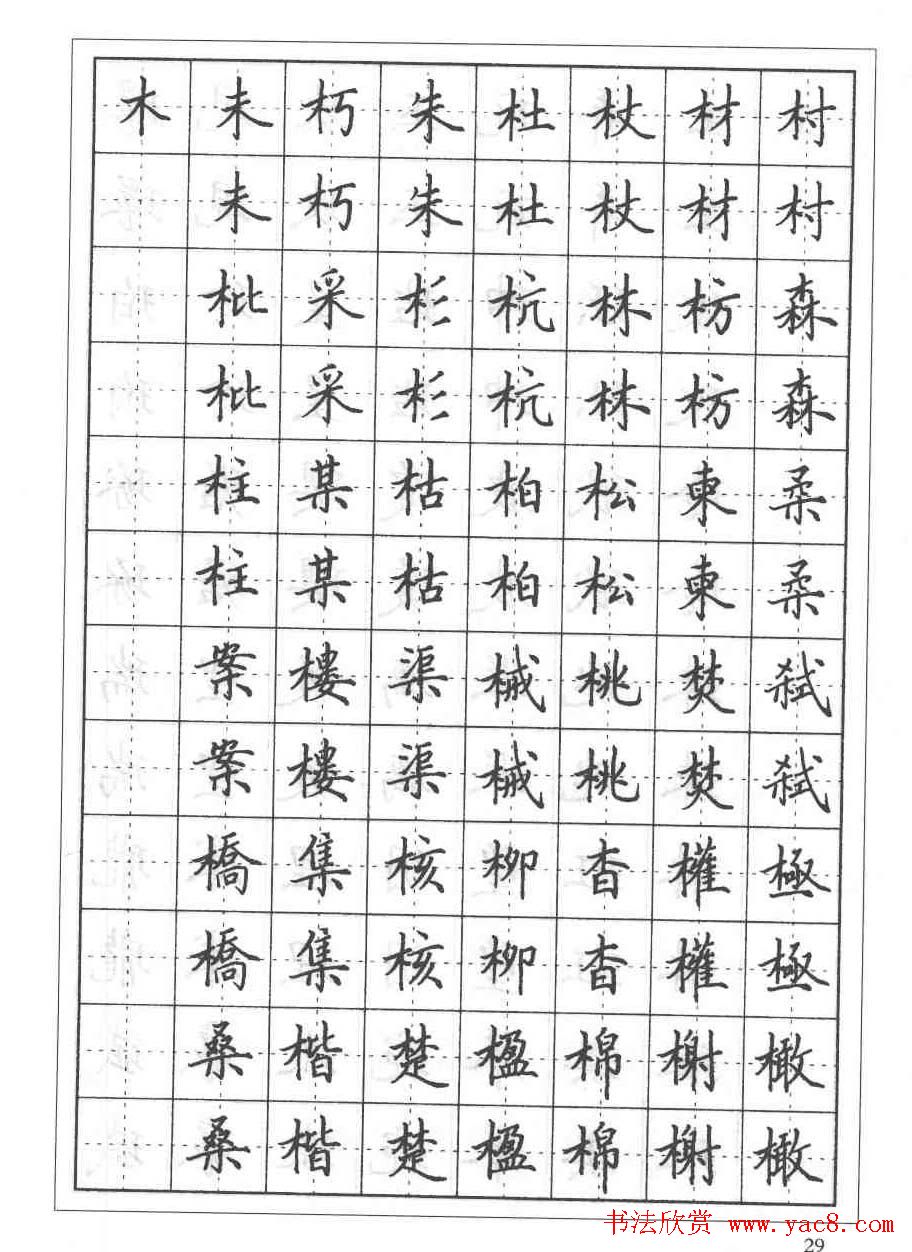 木未朽朱杜杖材村
未朽朱杜杖材村
枇采杉杭林枋森
枇采杉杭林枋森
柱某枯柏松柬柔
柱某枯柏松柬柔
案楼渠械桃焚弑
案楼渠械桃焚弑
橋集核柳杳權極
橋集核柳杳權極
桑楷楚楹棉榭橄
桑楷楚楹棉榭橄
书法欣赏 www.yac8.com
29